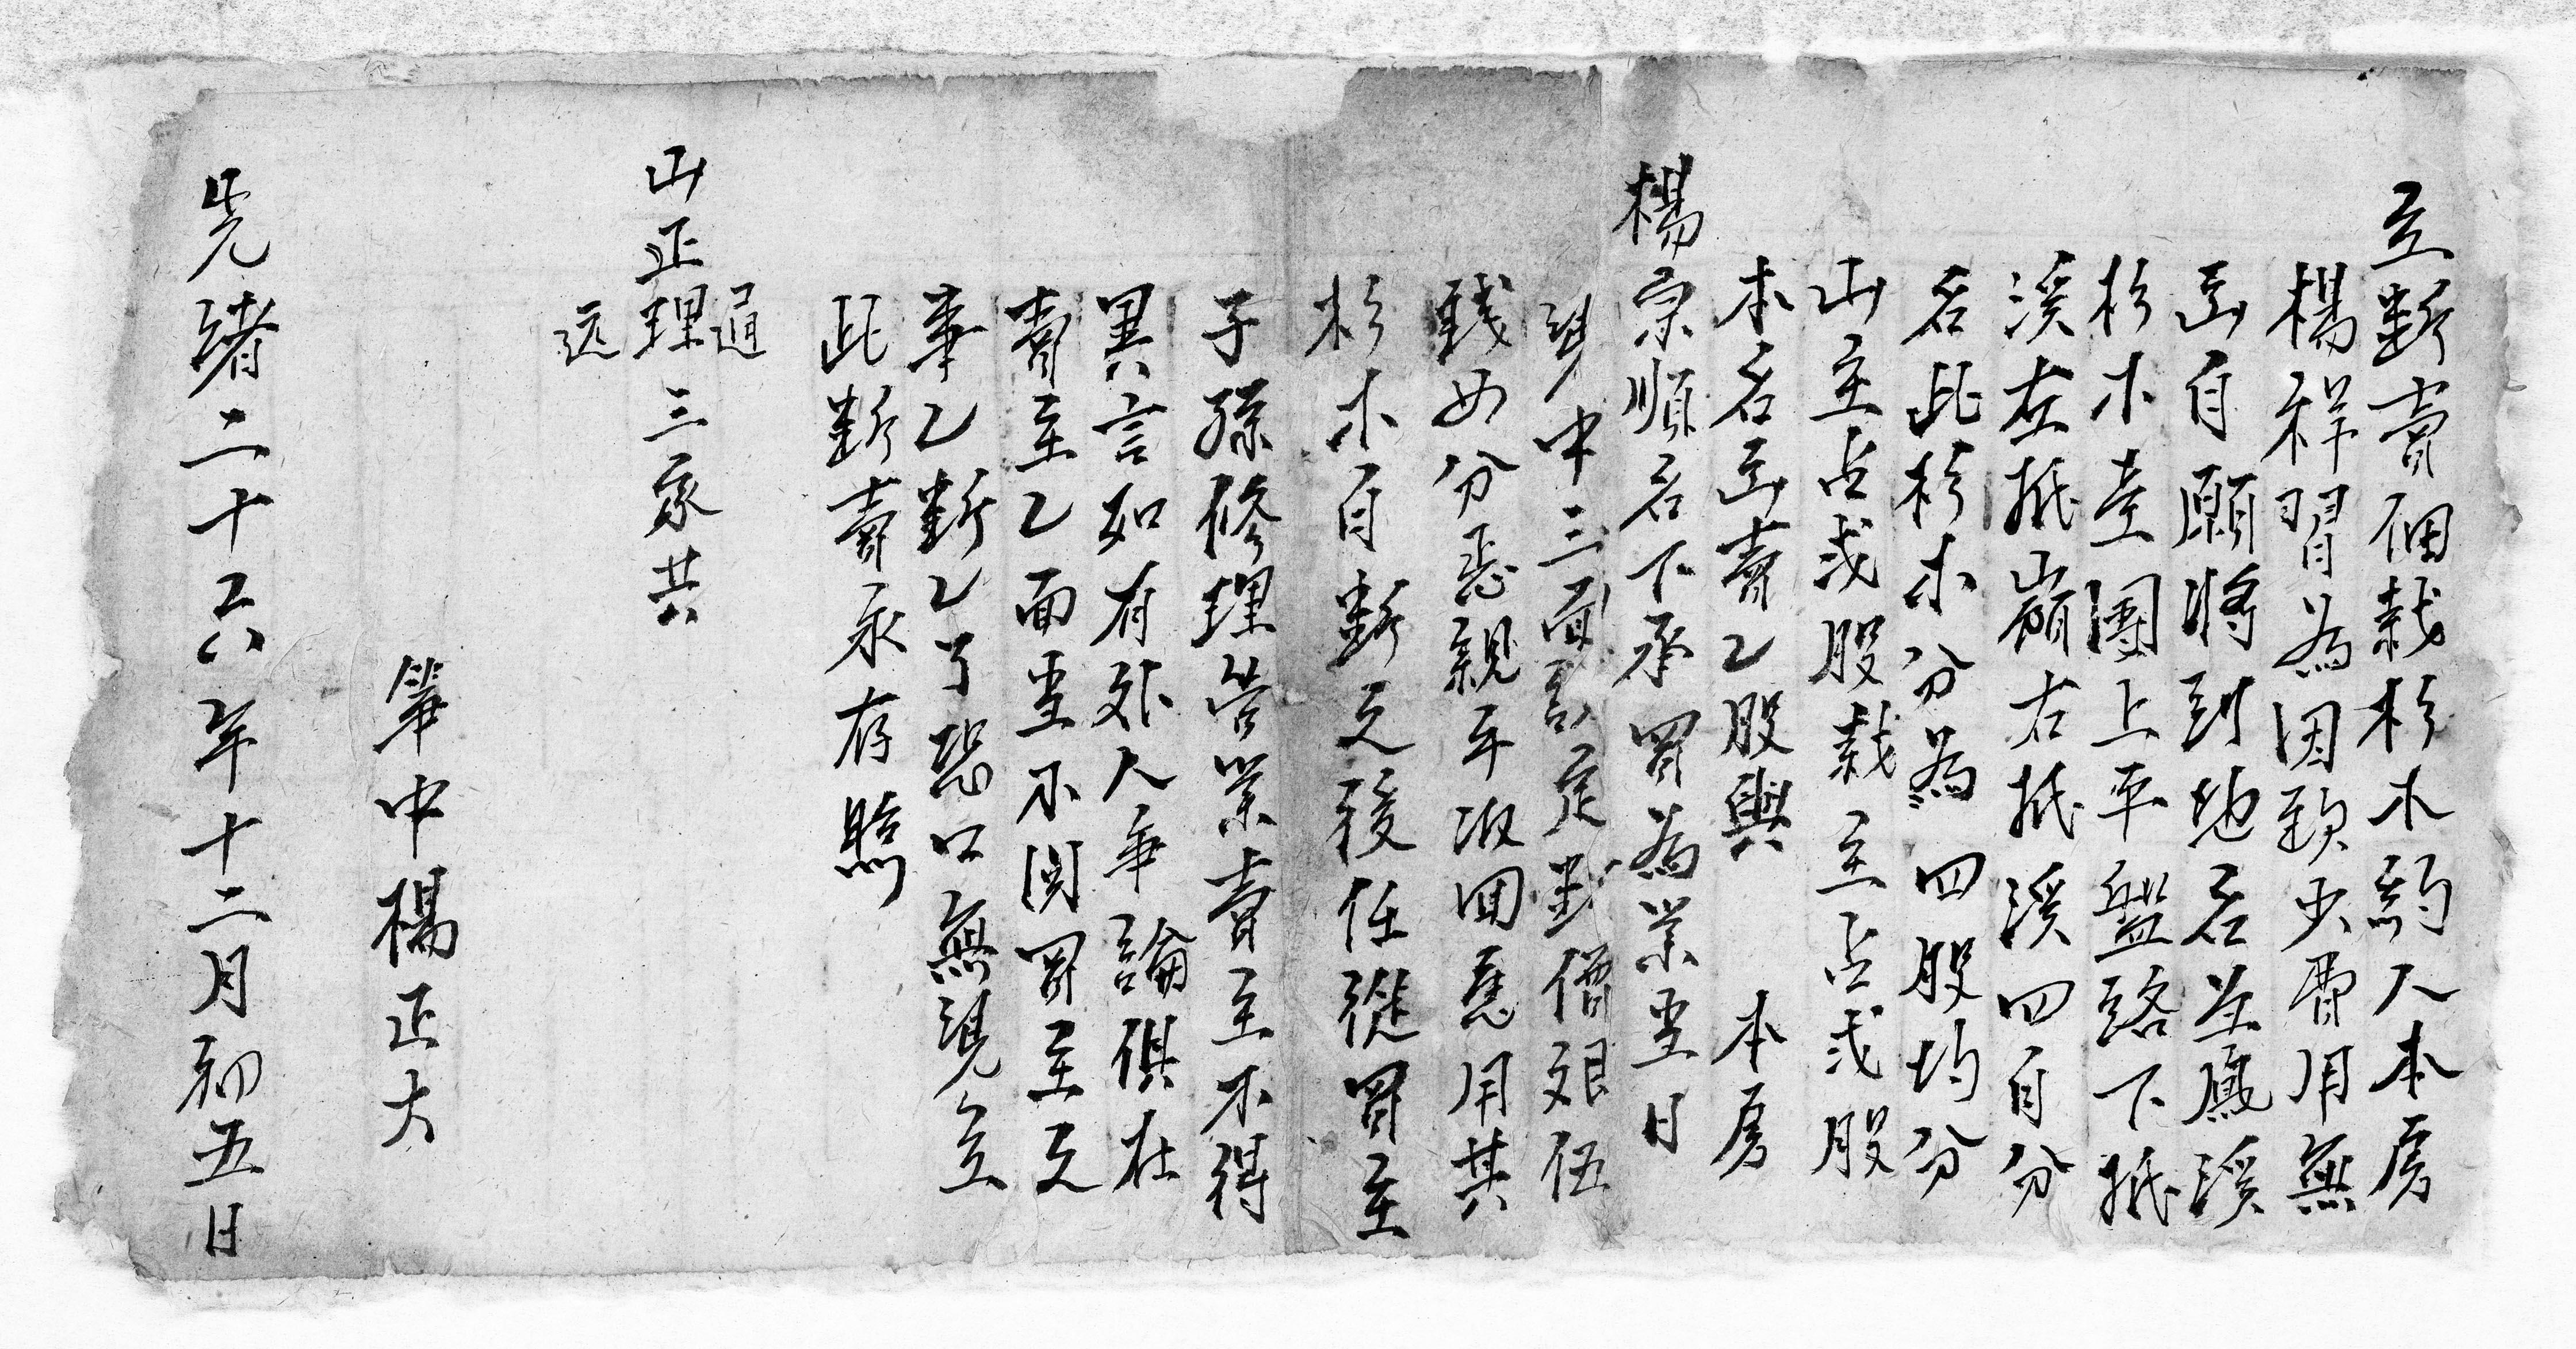 立斷賣佃栽杉木約人本房
楊祥習為因缺少費用無
出自願將到地名并鳳溪
杉木壹團上平盤路下抵
溪左抵嶺右抵溪四自分
名此杉木分為四股均分
山主占貳股栽主占貳股
本名出賣乙股與　本房
楊宗順名下承買為業當日
凴中三面言定對價銀伍
錢四分悉親手收回應用其
杉木自斷之後任從買主
子孫修理管業賣主不得
異言如有外人爭論俱在
賣主乙面當不関買主之
事乙斷乙了恐口無凴立
此斷賣永存照
通
山正理三家共
远
筆中楊正大
光緒二十六年十二月初五日